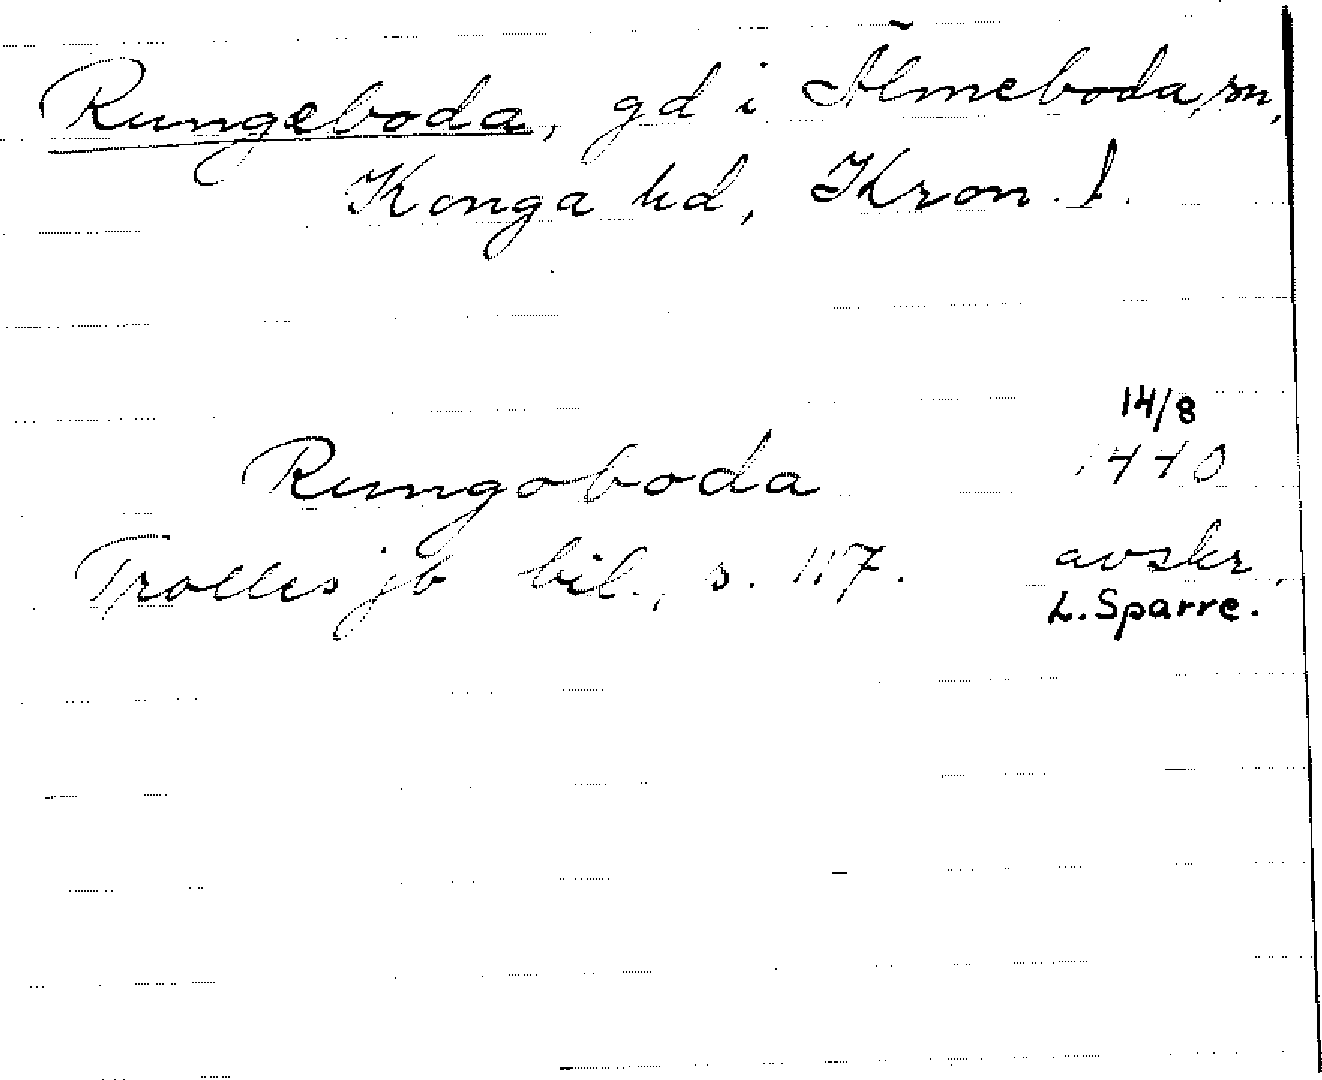 Rungeboda, gd i Älmeboda sn,
Konga hd, Kron. l.
14/8
Rungoboda 1440
Trolles jb bil., s. 117. avskr.
L. Sparre.